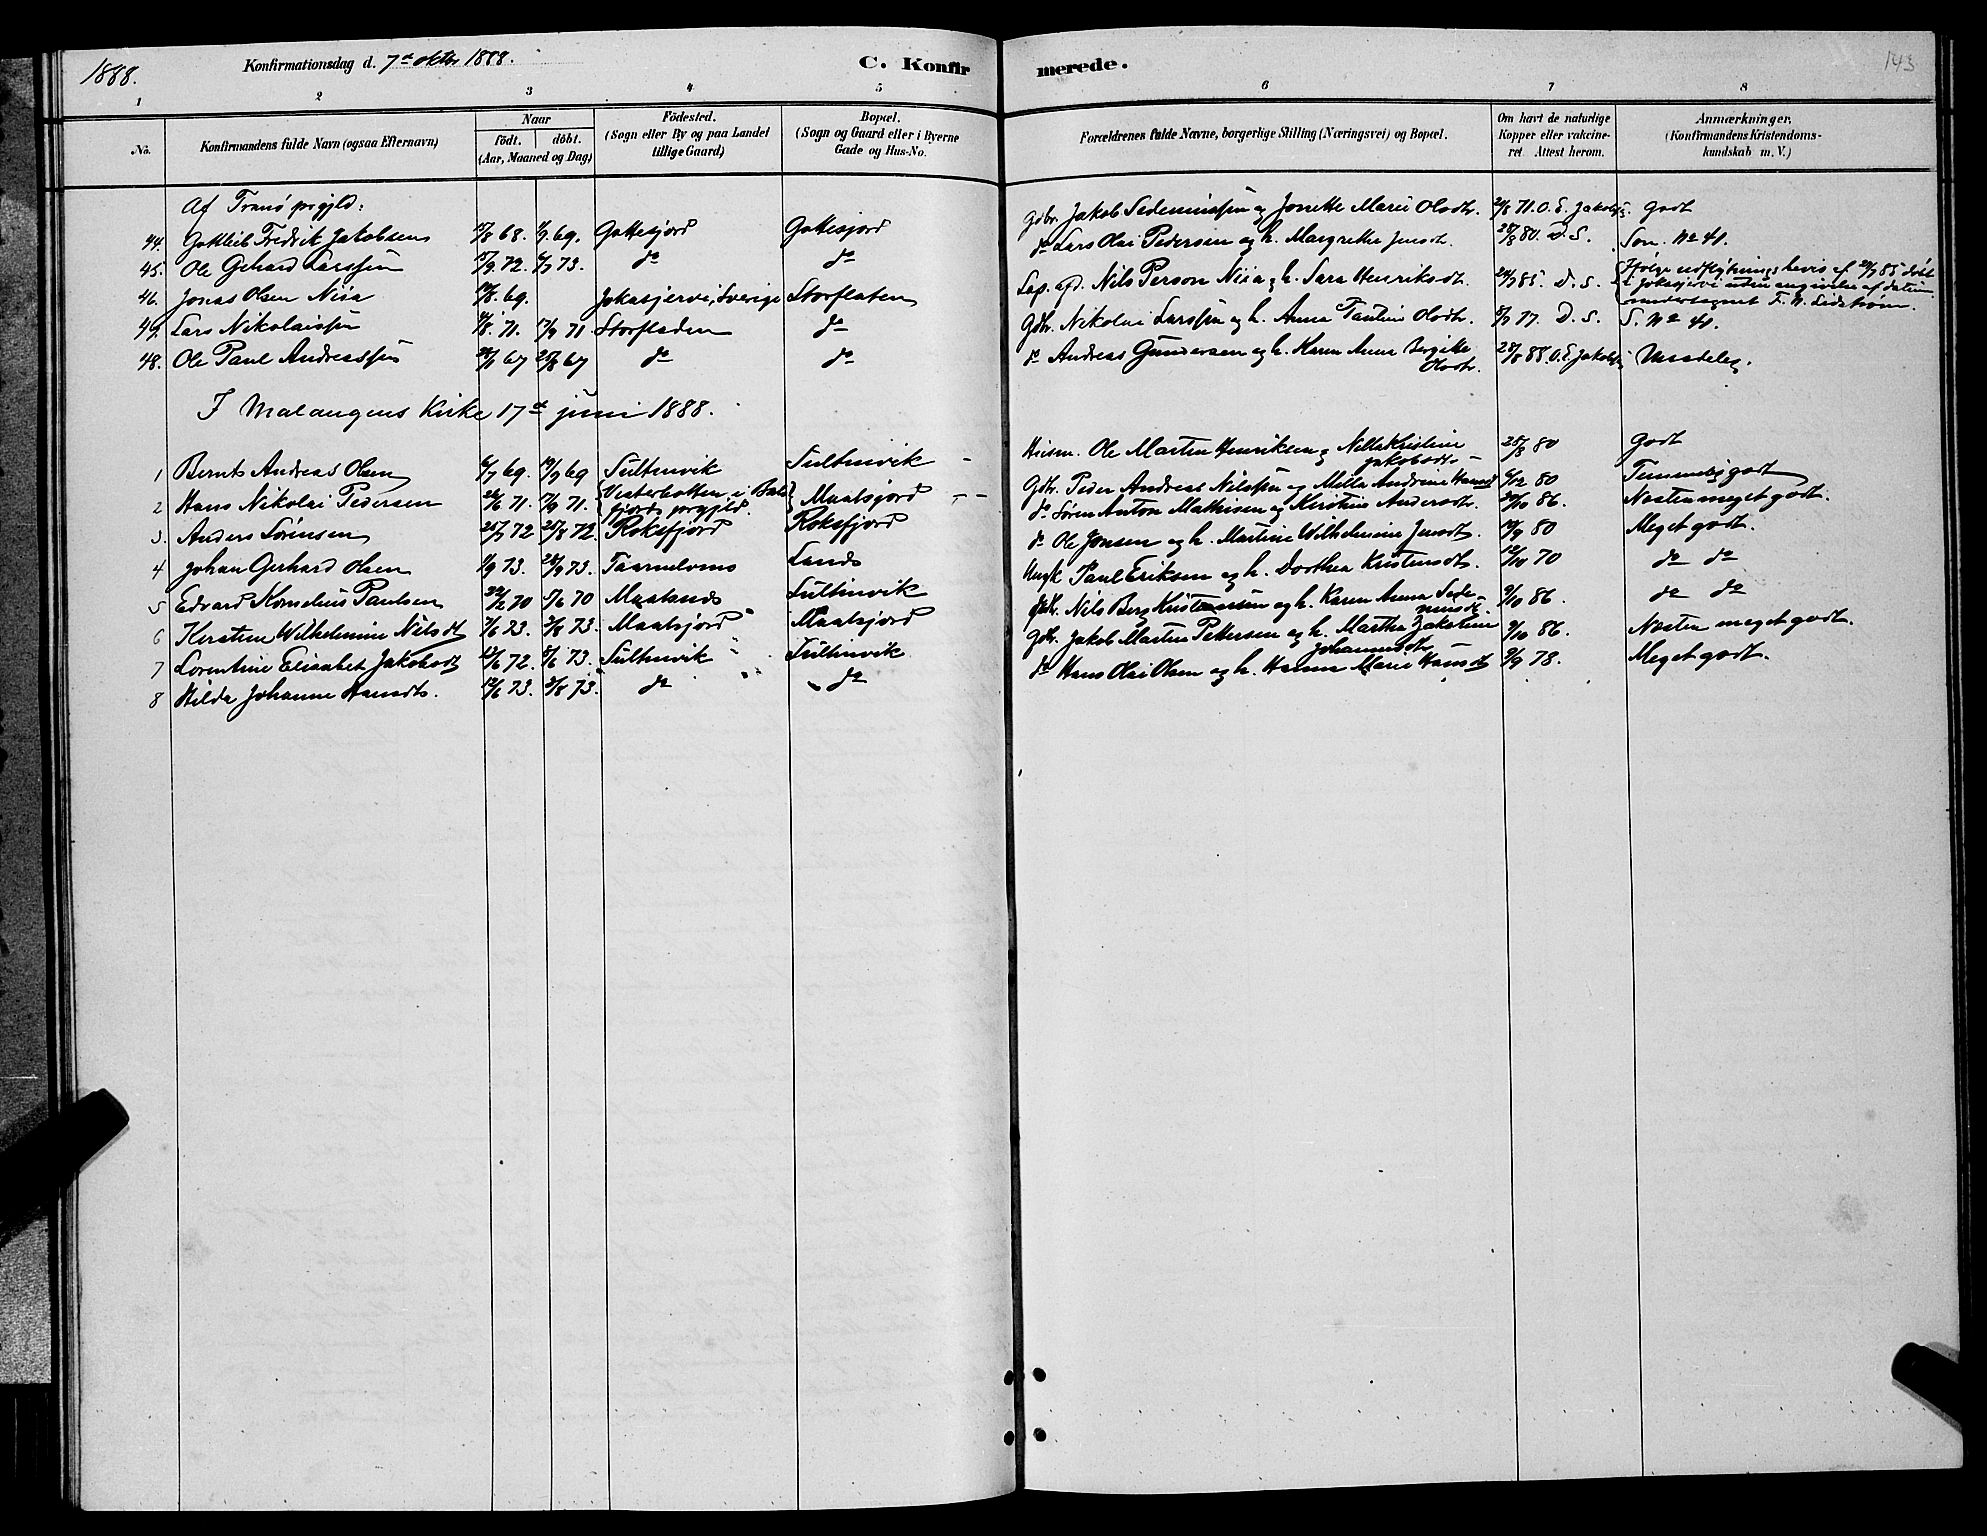 1888. Konfirmationsdag d. 7de oktbr 1888. C. Konfirmerede. 143
1 2 3 4 5 6 7 8
No. Konfirmandens fulde Navn (ogsaa Efternavn) Naar födt. döbt. (Aar, Maaned og Dag) Födested. (Sogn eller By og paa Landet tillige Gaard) Bopæl. (Sogn og Gaard eller i Byerne Gade og Hus-No. Forældrenes fulde Navne, borgerlige Stilling (Næringsvei) og Bopæl. Om havt de naturlige Kopper eller vakcineret. Attest herom. Anmærkninger. (Konfirmandens Kristendomskundskab m. V.)
Af Tranö prgjld:
44. Gottlieb Fredrik Jakobsen 68. 69. Gottesjord Gottesjord Gdbr. Jakob og Jonette Marie Olsdtr. 71. O. E. Jakobsen. Godt
45. Ole Gehard Larssen 72. 73. do do do Lars Olai Pedersen og h. Margrethe Jensdt. 28/8 80. D. S. Som No 41.
46. Jonas Olsen Nia 69. Jokasjervi, Sverige Storflaten Lap. Nils Person Nia og h. Sara Henriksdt. 24/7 85. D. S. Ifølge udflytningsbevis af 24/7 85 døbt i Jokasjervi uden angivelse af datum undertegnet F. W. Lidstrøm.
49. Lars Nikolaissen 71. 17/9 71 Storfladen do Gdbr. Nikolai Larssen og h. Anna Olsdtr. 77. D. S. S. No 41.
48. Ole Paul Andreassen 67 67 do do do Andreas Gundersen og h. Karen Anna Bergitte Olsdtr. 88. O. E. Jakobsen Maadelig.
I Malangens Kirke 17de juni 1888.
1 Bernt Andreas Olsen 6/7 69. 19/9 69 Sultinvik Sultinvik Husm. Ole Martin Henriksen og Nella Kristine Jakobsdt. 80 Godt
2 Hans Nikolai Pedersen 71. 17/9 71. Vesterbotten i Balsfjords prgjld. Maalsjord Gdbr. Peder Andreas Nilssen og Mille Andrine Hansdt 6/12 80 Temmelig godt
3. Anders Sørensen 25/7 72 25/8 72. Roksfjord Roksfjord do Søren Anton Mathisen og Kirstine Andersdt. 86. Næsten meget godt.
4 Johan Gerhard Olsen 73. 73. Taarnelvmo Lands do Ole Jonsen og h. Martine Wilhelmine Jensdt. 19/9 80 Meget godt.
5 Edvard Kornelius Paulsen 22/2 70 5/6 70 Maalands Sultinvik Ungk Paul Eriksen og h. Dorthea Kristensdt. 12/10 70 do do
6 Kirstine Wilhelmine Nilsdt 73. 73. Maalsjord Maalsjord Gdbr. Nils Berg Kristensen og h. Karen Anna 9/10 86. do do
7 Lorentine Elisabet Jakobsdt 72. 73. Sultinvik Sultinvik Gdbr. Jakob Martin Pettersen og h. Martha Jakobine Johannesdtr 9/10 86. Næsten meget godt.
8 Hilda Johanne Hansdtr. 12/6 73. 3/8 73. do do do Hans Olai Olsen og h. Hanna Marie Hansdt 9/9 78. Meget godt.